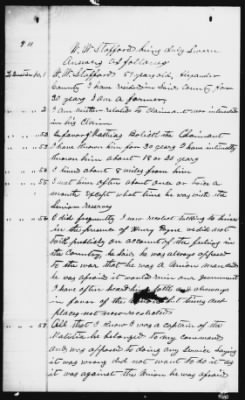 911
W. W. Stafford being duly Sworn
Answers as follows
To Question No 1 W. W. Stafford 57 years old, Alexander
County I have resided in Said County for
30 years I am a farmer
2 I am neither related to Claimant nor interested
in his Claim
52 In favor of Claimant
53 I have known him for 30 years I have intimately
known him about 18 or 20 years
54 I lived about 8 miles from him
55 I met him often about once or twice a
month Except what time he was with the
Senior reserves
56 I did frequently I now recollect talking to him
in the presence of Henry Payne we did not
talk publicly on account of the feeling in
the Country, he said he was always opposed
to the war that he was a Union man and
he was afraid it would ruin our government
I have often heard him talk always
in favor of the but times and
places not now recollected
57 All that I know I was a captain of the
Malitia he belonged to my command
and was opposed to doing any service saying
it was wrong did not want to do it as
it was against the Union he was afraid